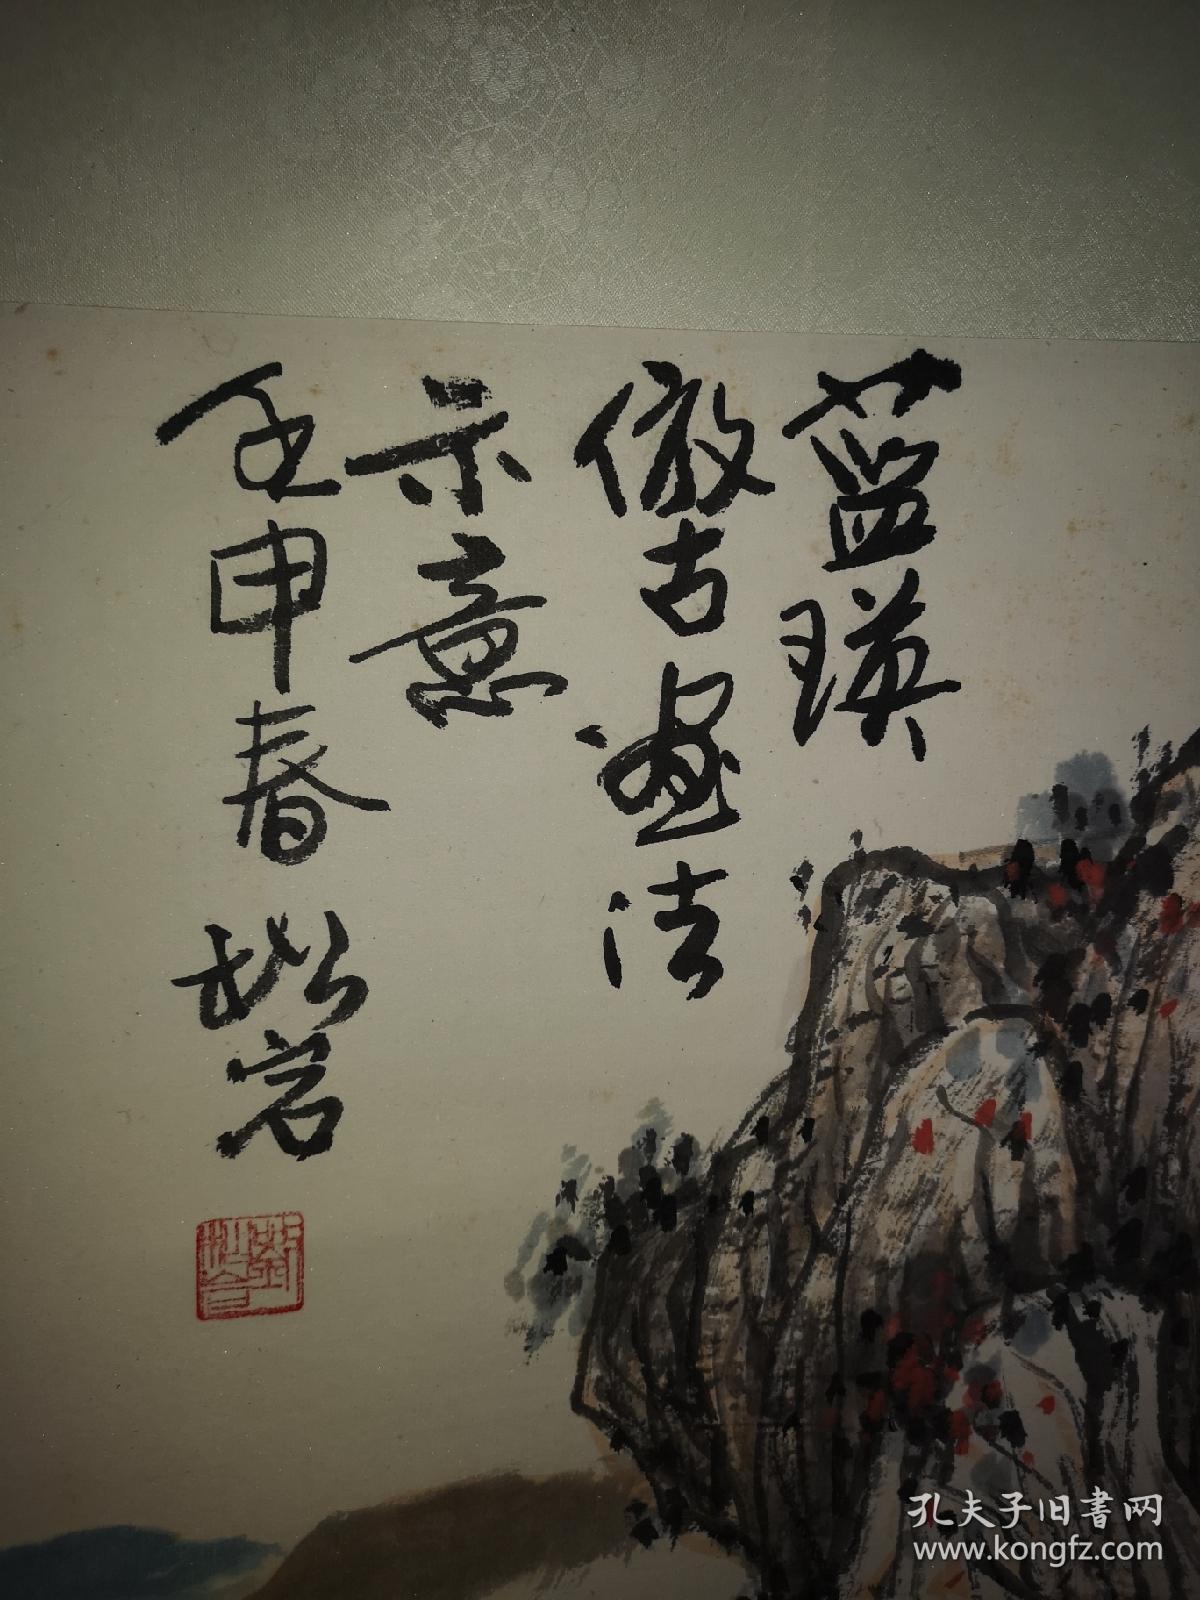 蓝瑛
倣古画法
示意
壬申春
孔夫子旧書网
www.kongfz.com